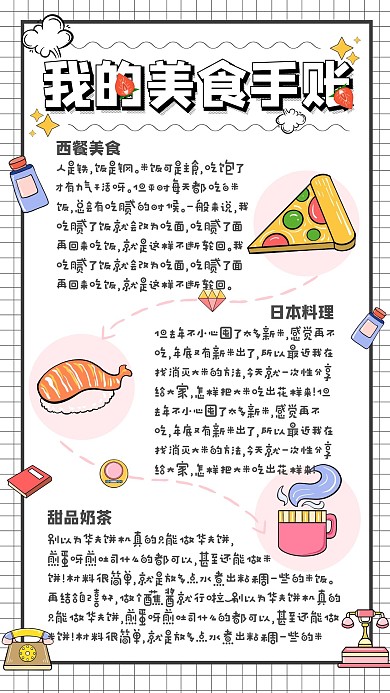 我的美食手账
西餐美食
人是铁,饭是钢。米饭可是主食,吃饱了
才有力气干活呀。但平时每天都吃白米
饭,总会有吃腻的时候。一般来说,我
吃腻了饭就会改为吃面,吃腻了面
再回来吃饭,就是这样不断轮回。我
吃腻了饭就会改为吃面,吃腻了面
再回来吃饭,就是这样不断轮回。
日本料理
但去年不小心囤了太多新米,感觉再不
吃,年底又有新米出了,所以最近我在
找消灭大米的方法,今天就一次性分享
给大家,怎样把大米吃出花样来!但
去年不小心囤了太多新米,感觉再不
吃,年底又有新米出了,所以最近我在
找消灭大米的方法,今天就一次性分享
给大家,怎样把大米吃出花样来!
甜品奶茶
别以为华夫饼机真的只能做华夫饼,
煎蛋呀煎吐司什么的都可以,甚至还能做米
饼!材料很简单,就是放多点水煮出粘稠一些的米饭。
再结合自己喜好,做个蘸酱就行啦。别以为华夫饼机真的
只能做华夫饼,煎蛋呀煎吐司什么的都可以,甚至还能做
米饼!材料很简单,就是放多点水煮出粘稠一些的米